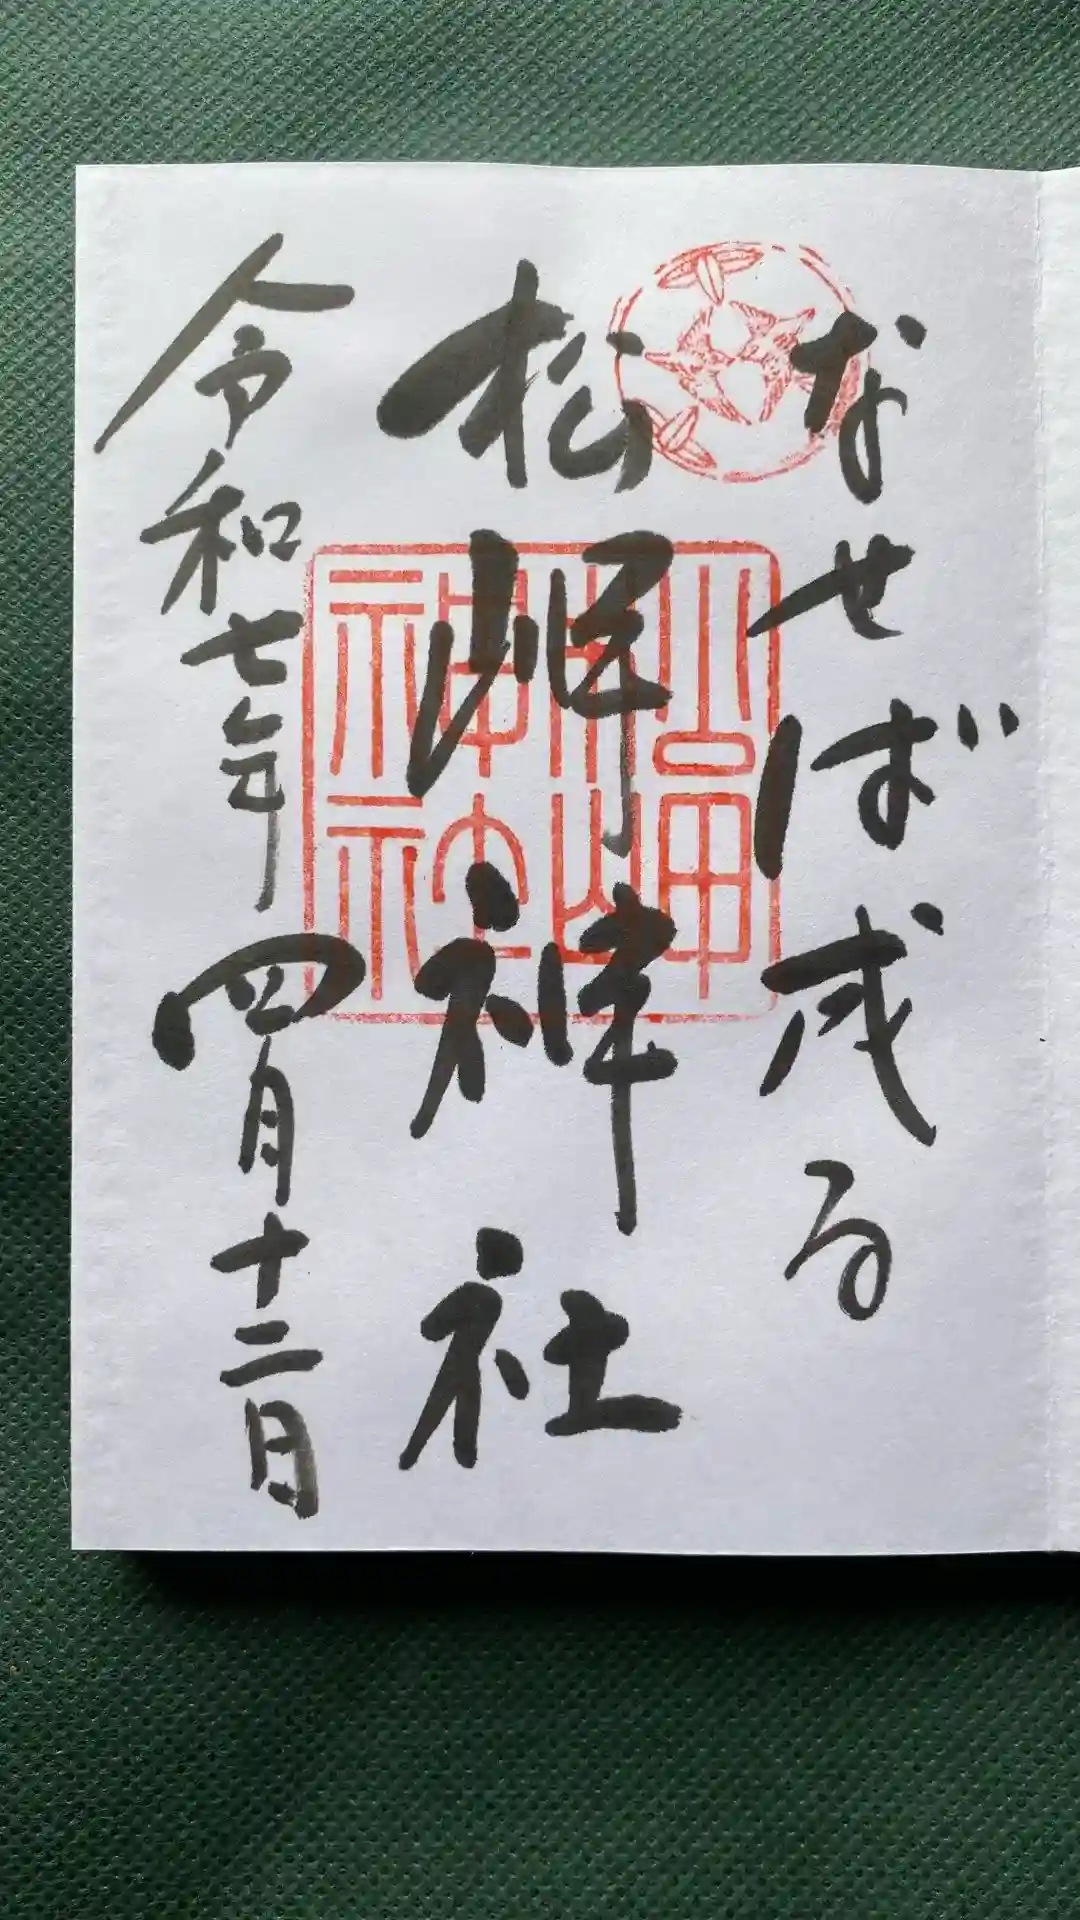 なせば成る
松岬神社
令和七年四月十二日
松岬神社